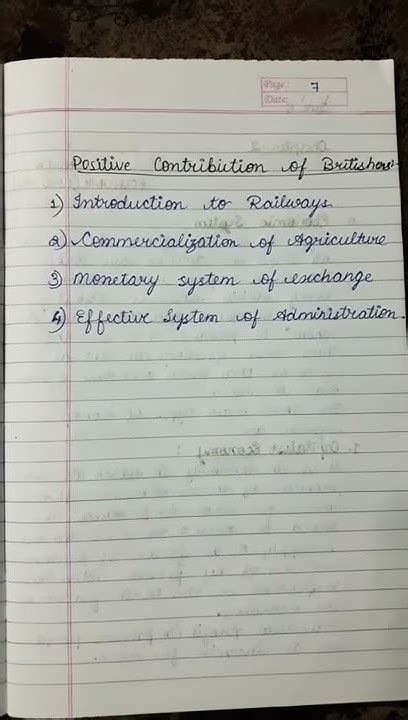 Page: 7
Date:
Positive Contribution of Britishers:-
1) Introduction to Railways.
2) Commercialization of Agriculture
3) Monetary system of exchange
4) Effective System of Administration.